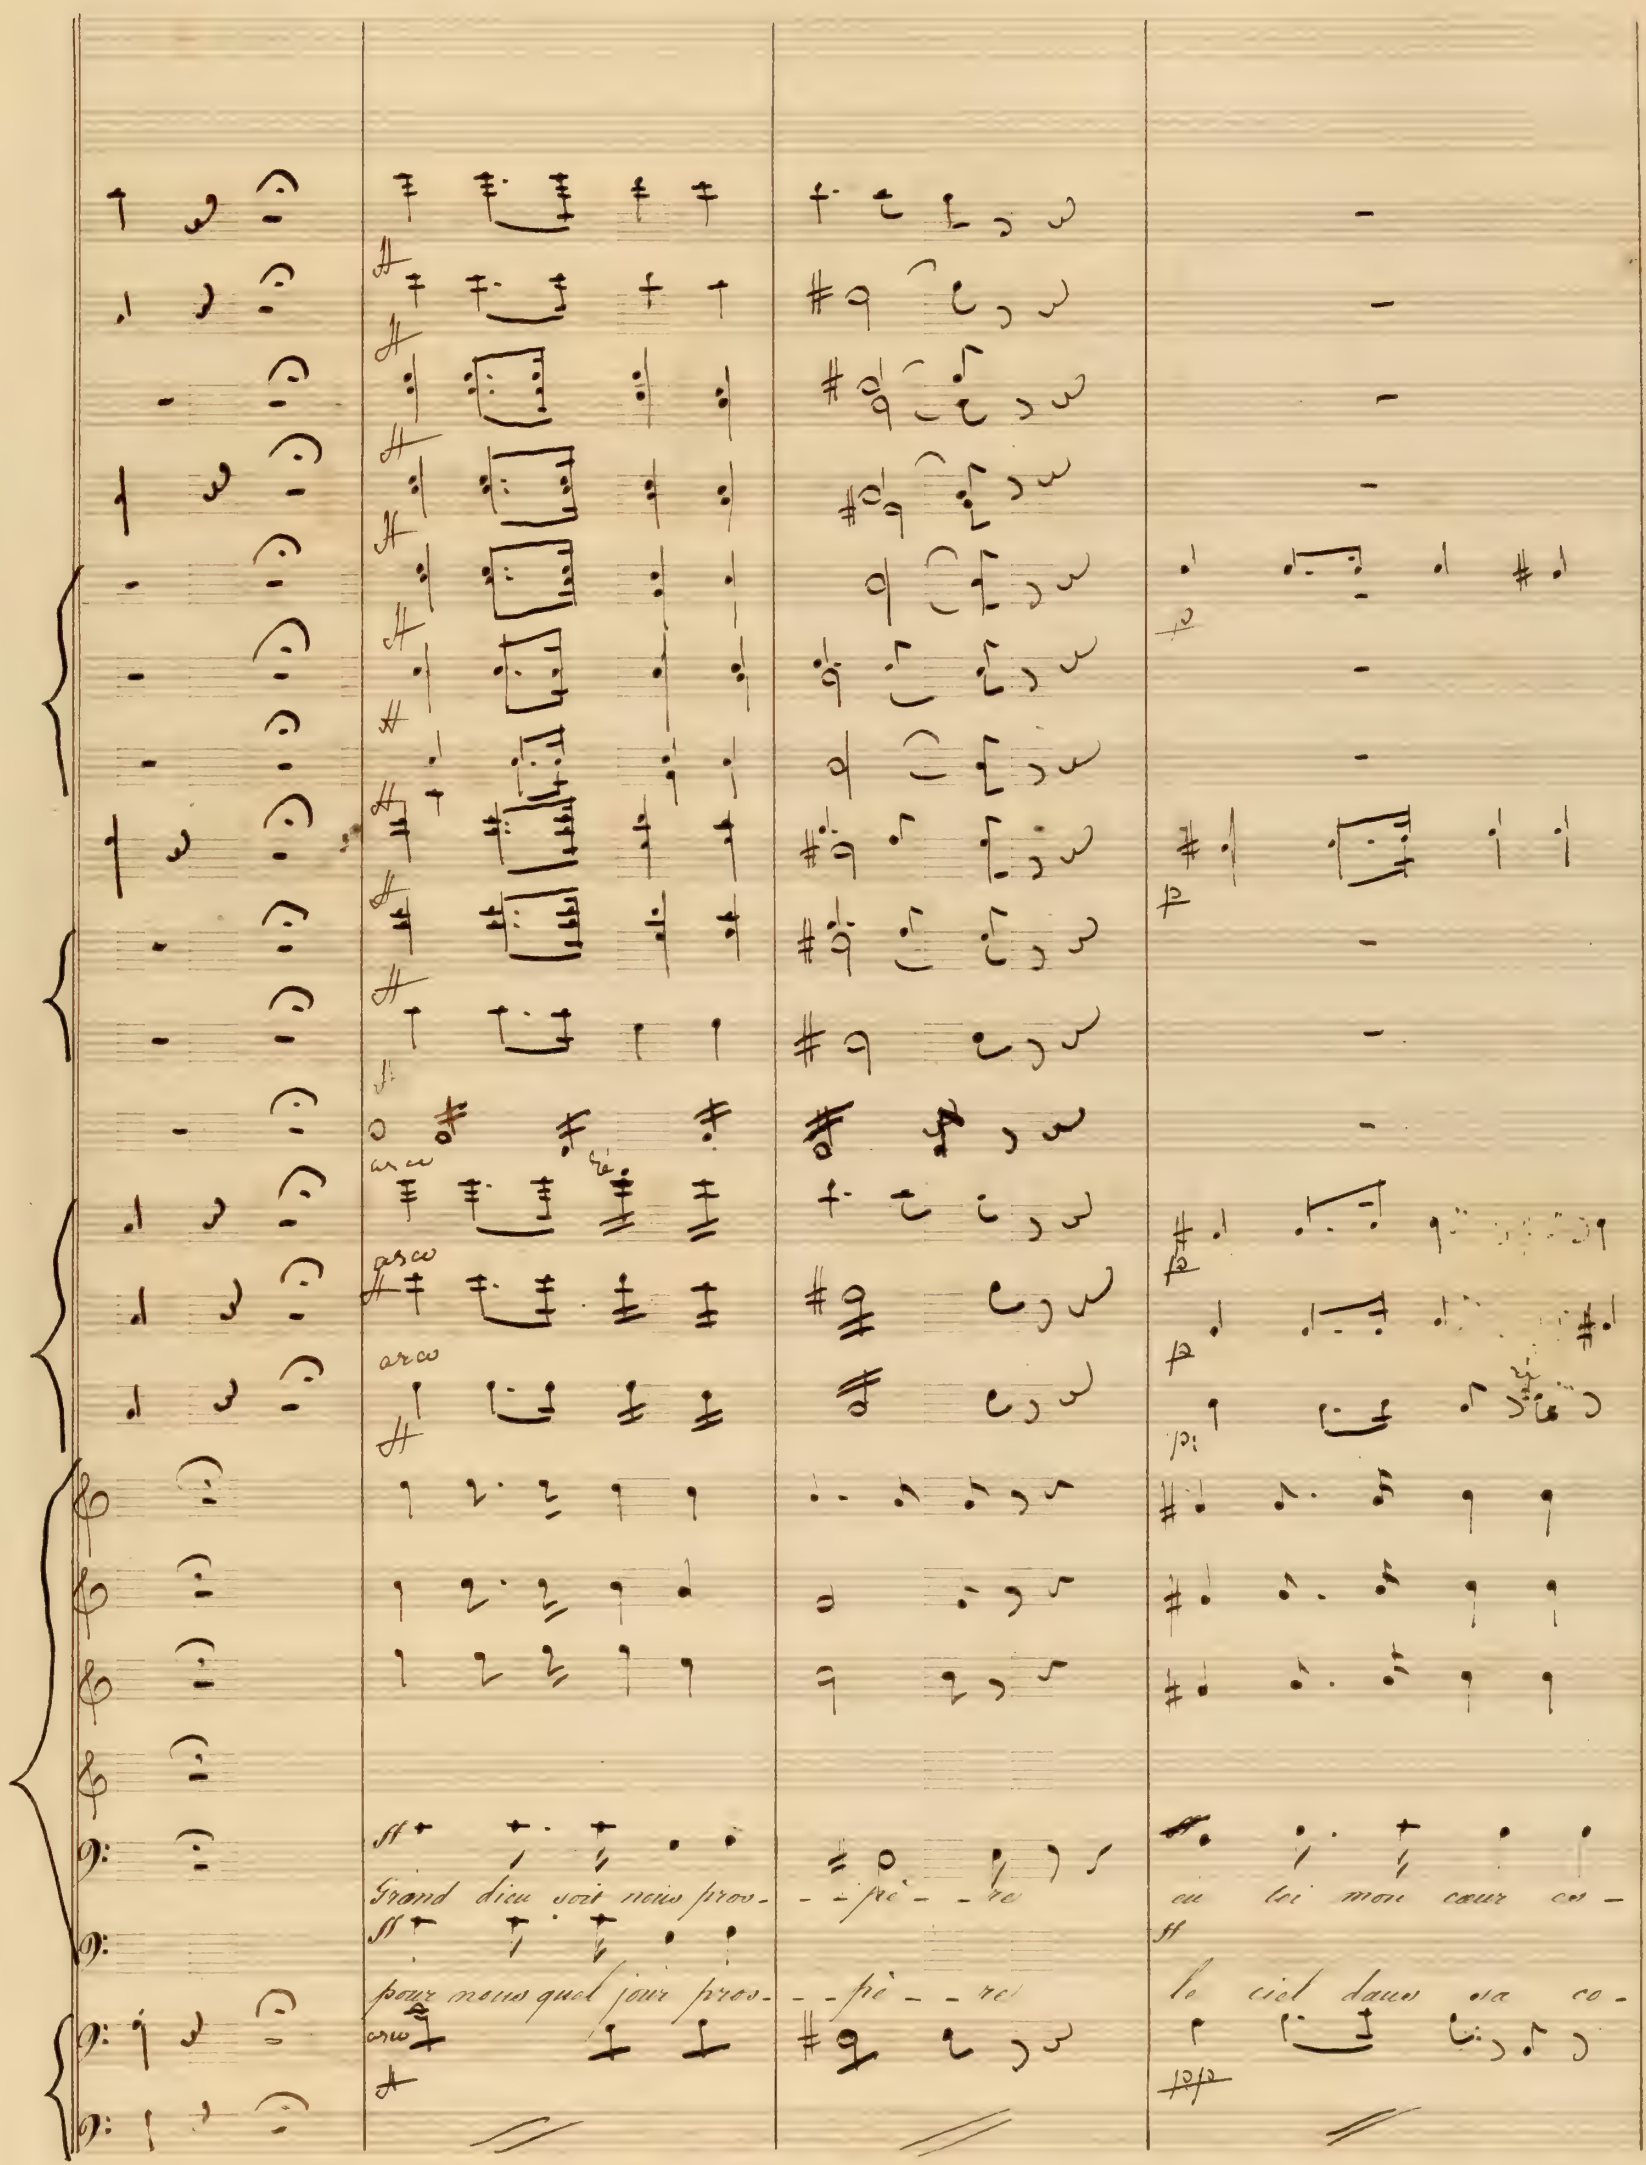 ff
ff
ff
ff
ff
p
ff
ff
p
ff
ff
arco
arco
p
ff
p
arco
ff
p:
ff
Grand dieu soit nous pros - - - pè - - re en toi mon cœur es -
ff ff
pour nous quel jour pros - - - pè - - re le ciel dans sa co -
arco
ff pp